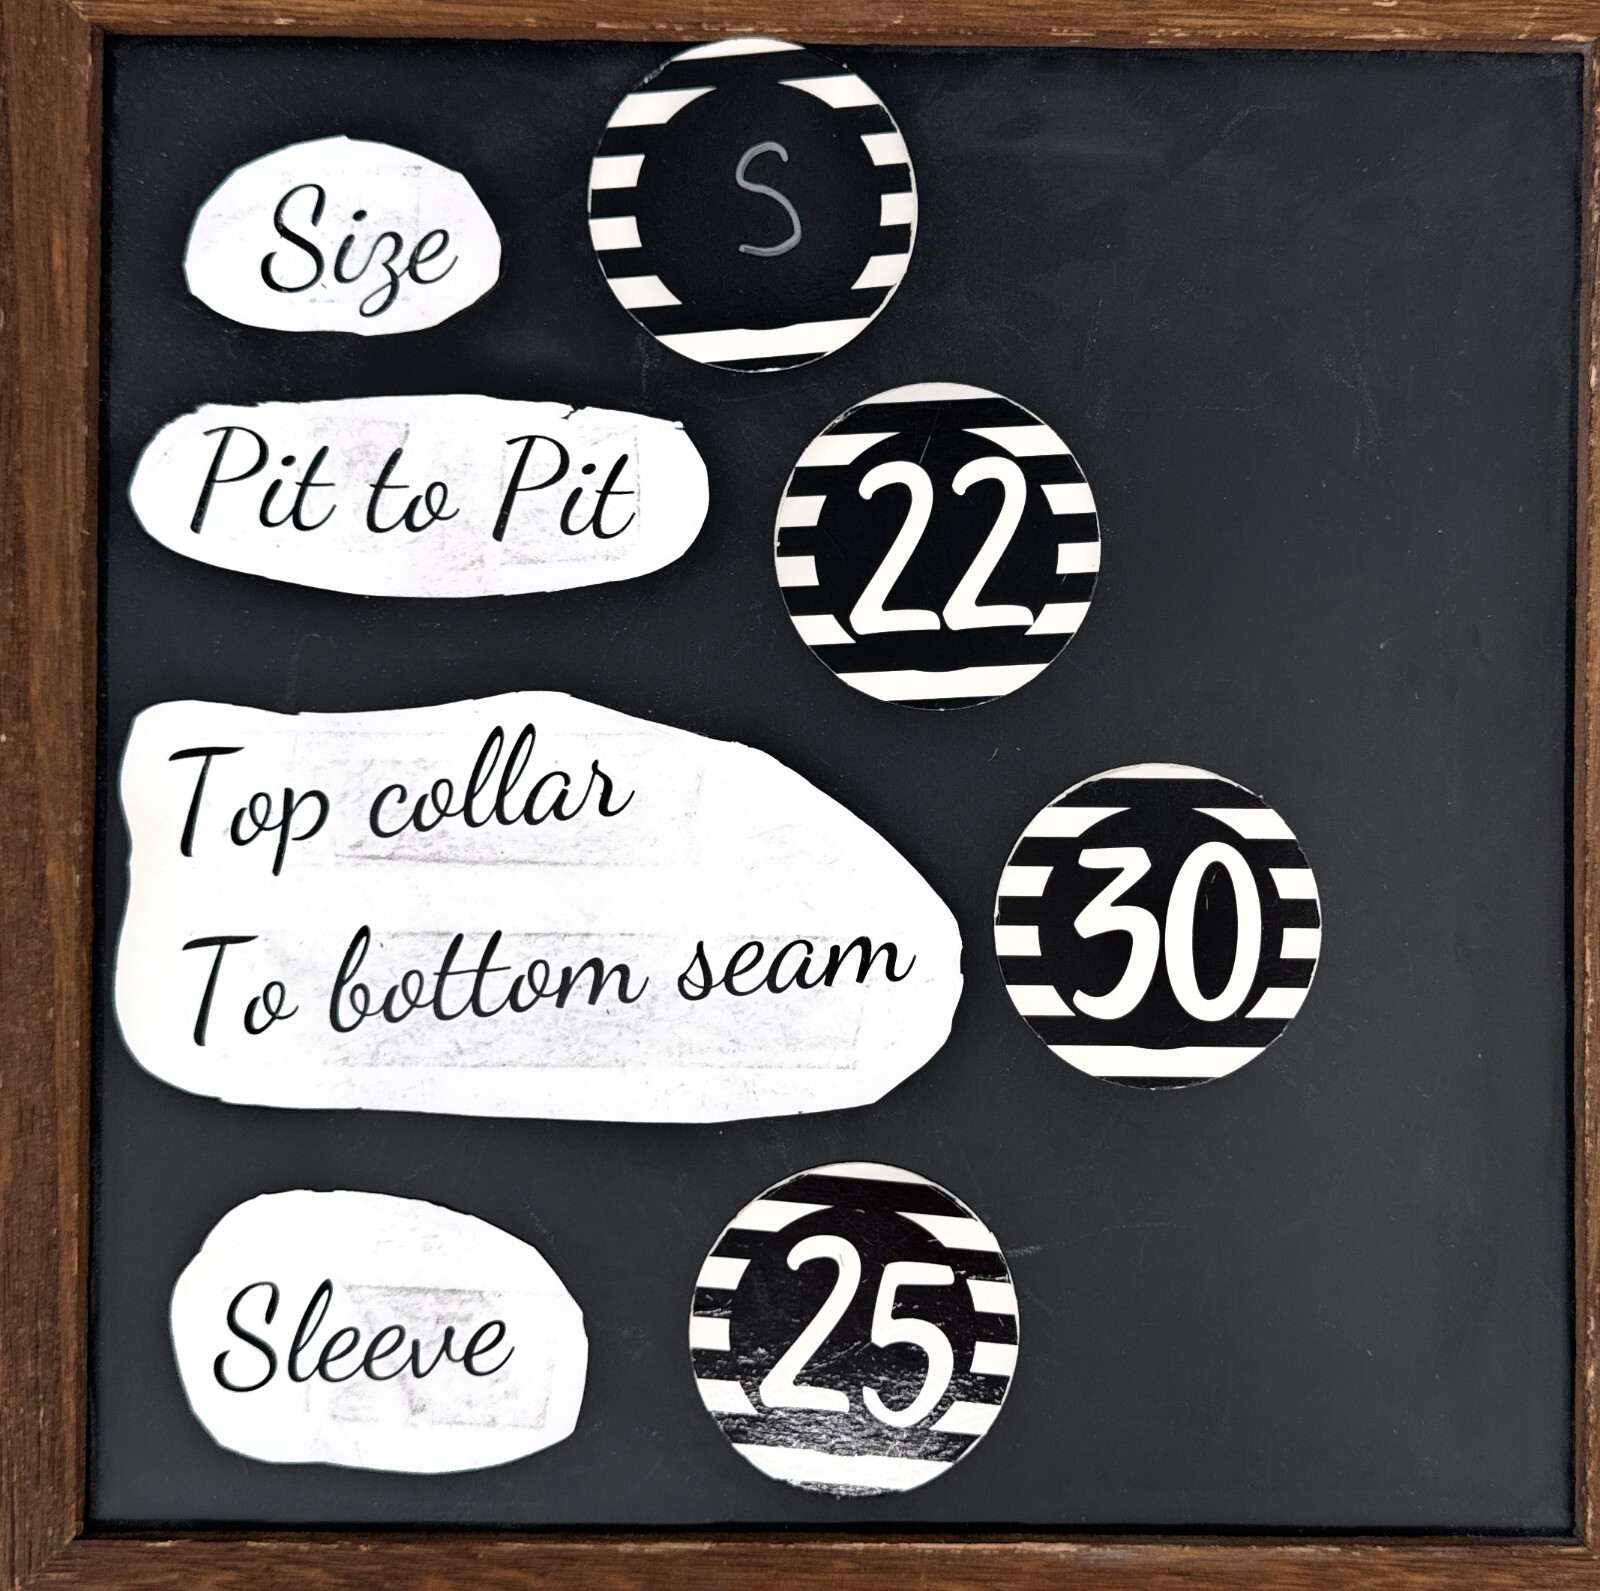 Size S
Pit to Pit 22
Top collar
To bottom seam 30
Sleeve 25